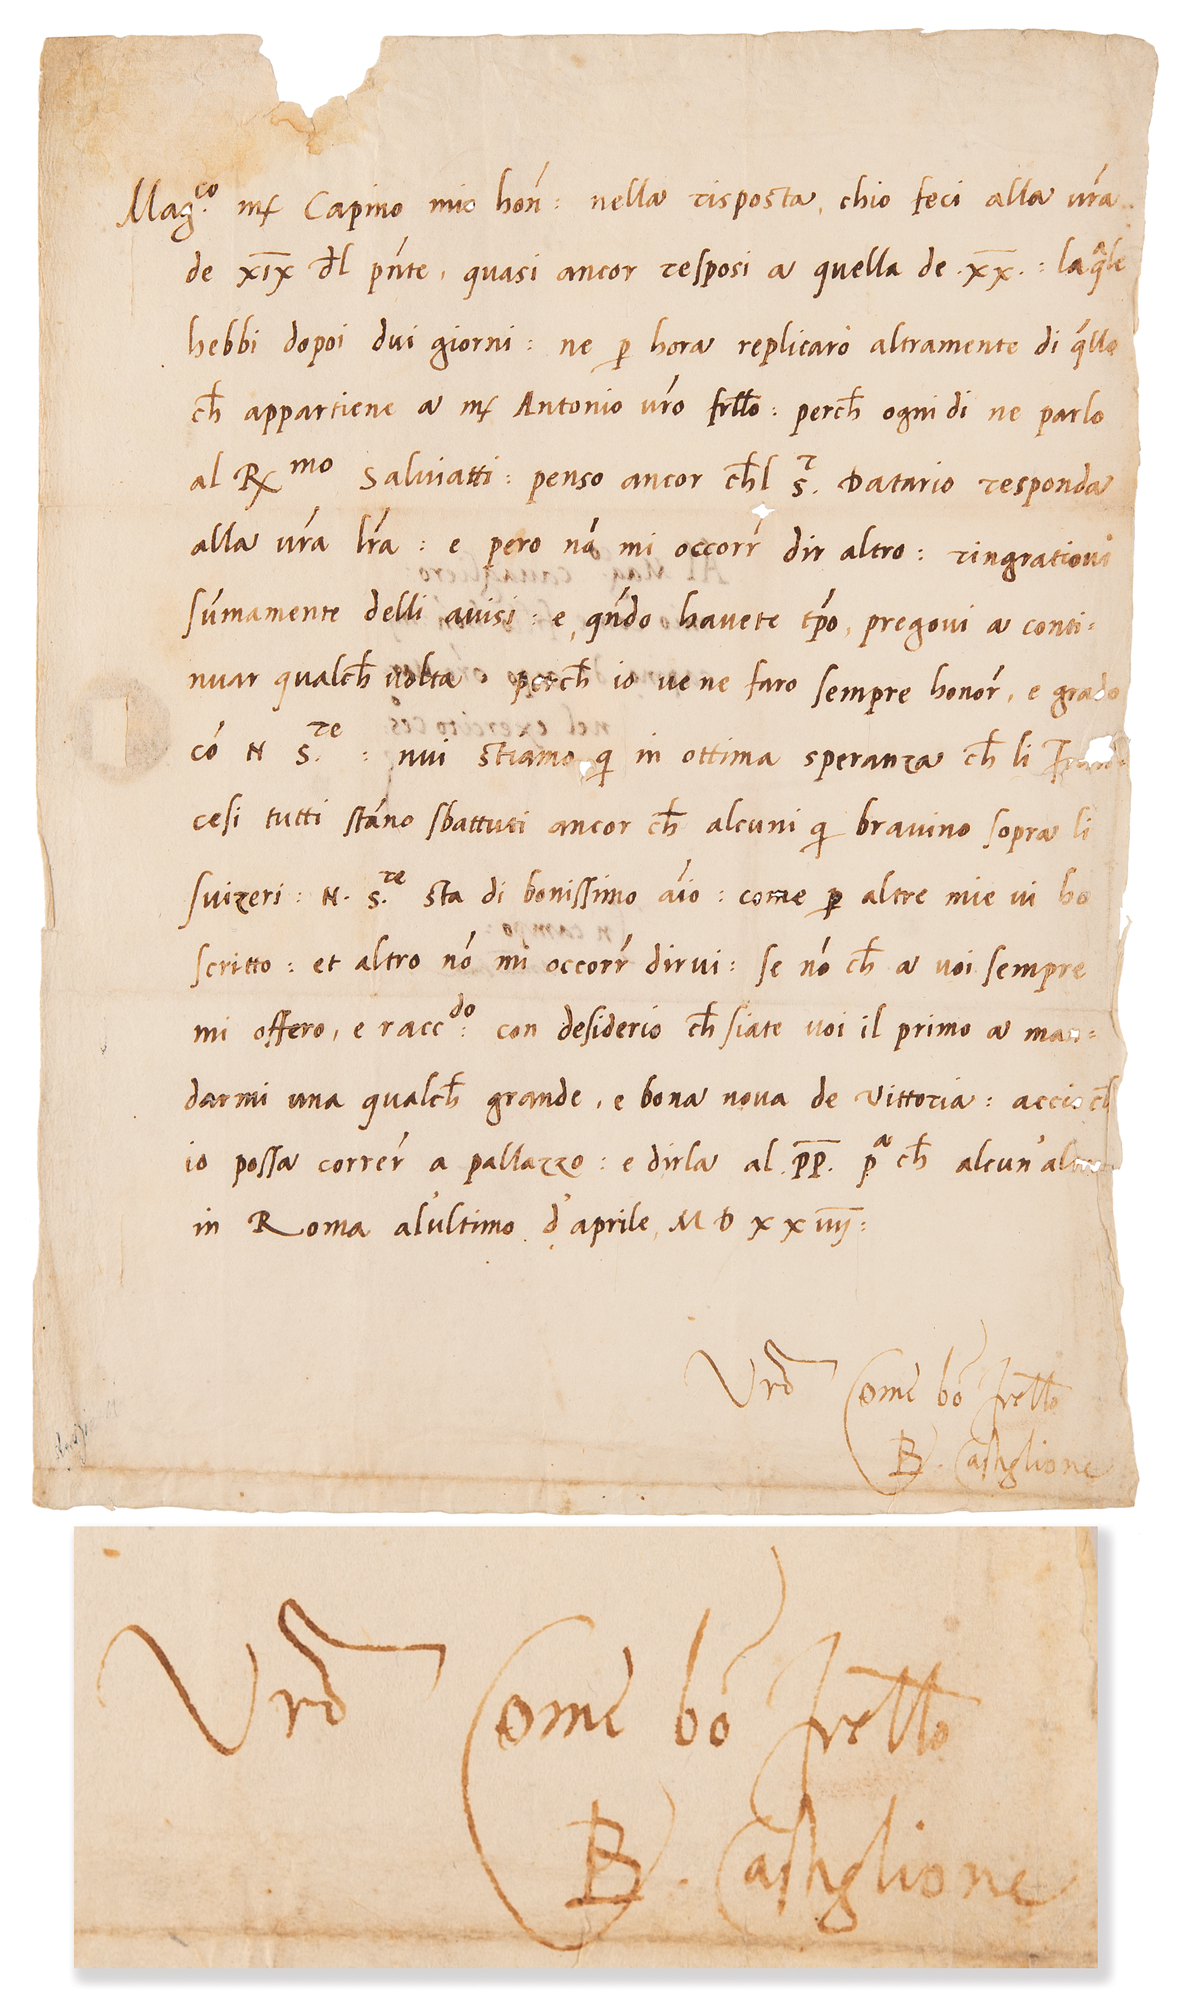 Mag.co mr Capino mio hon: nella risposta, chio feci alla vra
de xix dl pnte, quasi ancor resposi a quella de .xx. : la qale
hebbi dopoi dui giorni: ne p hora replicarò altramente di qllo
ch appartiene a mr Antonio vro frllo: perch ogni di ne parlo
al Rmo Salviatti: penso ancor chl S.r Datario responda
alla vra lra: e pero nō mi occorr dir altro: ringratiovi
sūmamente delli avisi: e, qndo havete tpo, pregovi a conti=
nuar qualch volta perch io ve ne faro sempre honor, e grado
cō N S.re : nui stiamo qi in ottima speranza ch li
cesi tutti stāno sbattuti ancor ch alcuni qi bravino sopra li
svizeri: N. S.re sta di bonissimo aīo: come p altre mie vi ho
scritto: et altro nō mi occorr dirvi: se nō ch a voi sempre
mi offero, e raccdo: con desiderio ch siate voi il primo a man=
darmi una qualch grande, e bona nova de Vittoria: accio ch
io possa correr a pallazzo: e dirla al .pp. pa ch alcun'altro
in Roma al'ultimo d'aprile, M D x x iiij:
Vro Come bō frello
B. Castiglione
Vro Come bō frello
B. Castiglione